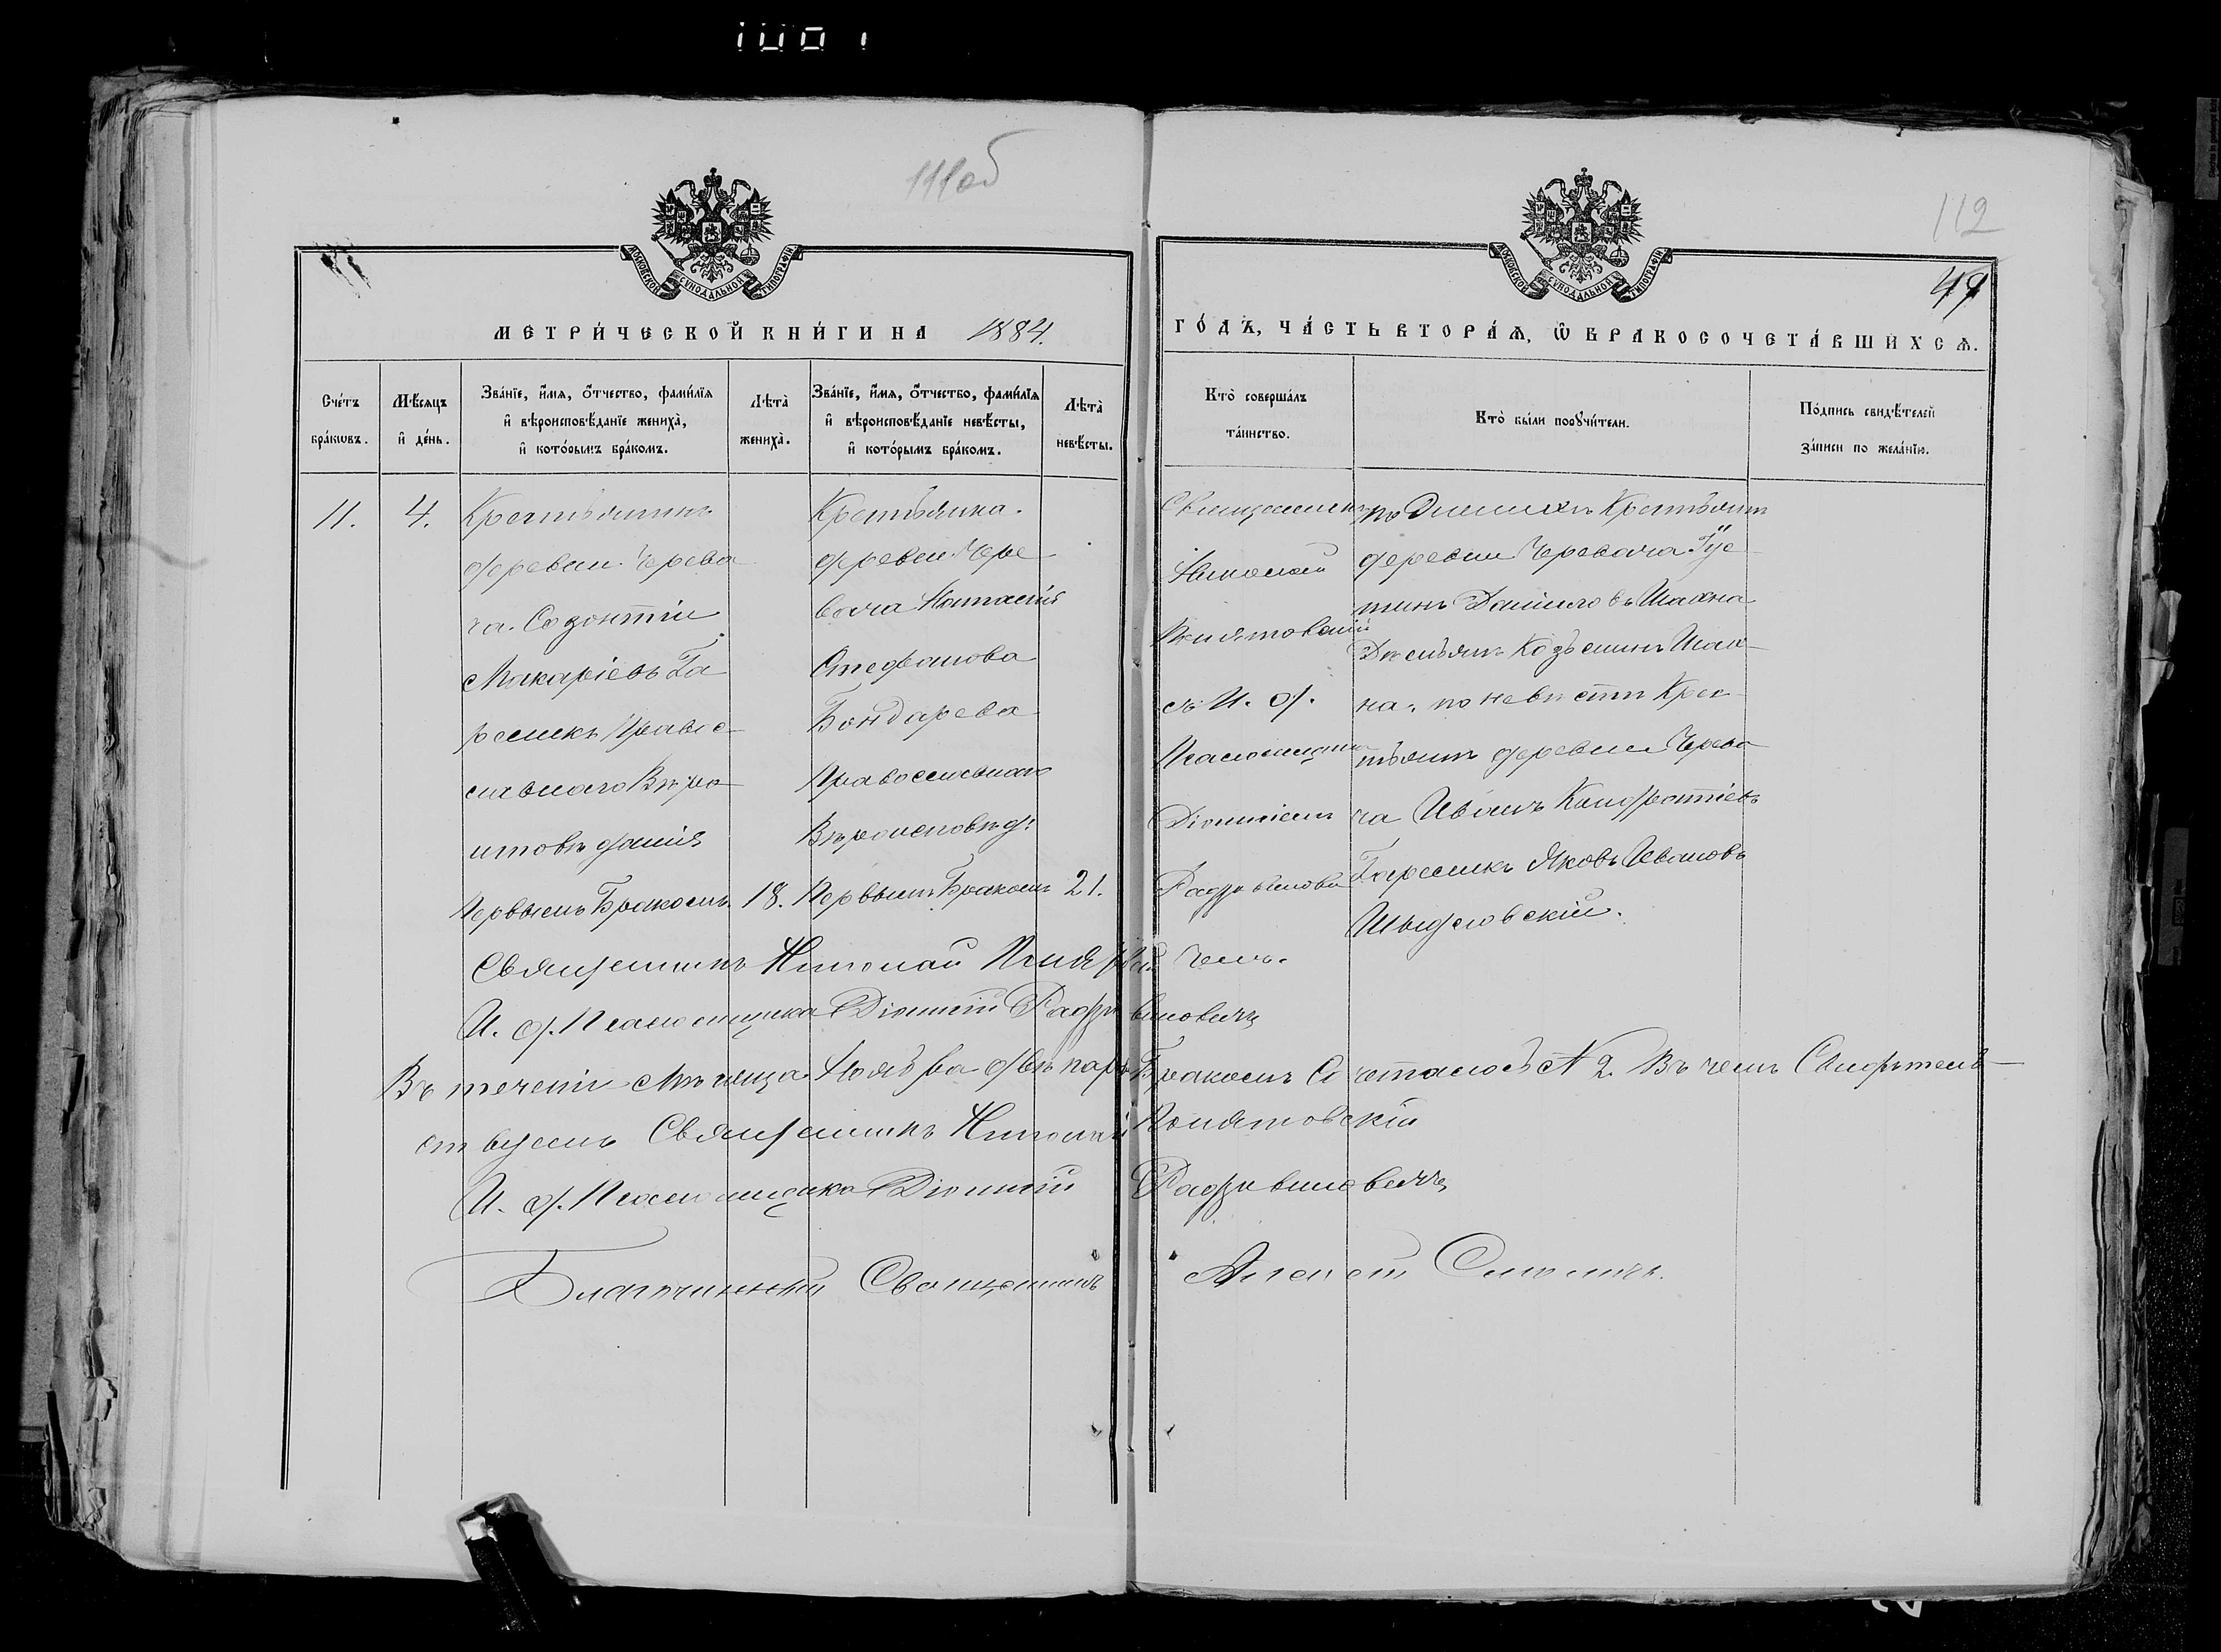 111об
112
49
МОСКОВСКОЙ СѴНОДАЛЬНОЙ ТИПОГРАФІИ
МОСКОВСКОЙ СѴНОДАЛЬНОЙ ТИПОГРАФІИ
МЕТРИ́ЧЕСКОЙ КНИ́ГИ НА 1884.
ГО́ДЪ, ЧА́СТЬ ВТОРА́Ѧ, Ѽ БРАКОСОЧЕТА́ВШИХСѦ.
Сче́тъ
бра́кѡвъ.
Мѣ́сяцъ
и҆ де́нь.
Зва́нїе, и҆́мѧ, ѻ҆́тчество, фами́лїѧ
и҆ вѣроисповѣ́данїе жениха̀,
и҆ кото́рымъ бра́комъ.
Лѣта̀
жениха̀.
Зва́нїе, и҆́мѧ, ѻ҆́тчество, фами́лїѧ
и҆ вѣроисповѣ́данїе невѣ́сты,
и҆ кото́рымъ бра́комъ.
Лѣта̀
невѣ́сты.
Кто̀ соверша́лъ
та́инство.
Кто̀ бы́ли порꙋчи́тели.
По́дпись свидѣ́телей
за́писи по жела́нїю.
11.
4.
Крестьянинъ
деревни Черева
ча. Созонтій
Макаріевъ Га
Правос
славнаго Вѣро
исповѣданія
Первымъ Бракомъ
18.
Крестьянка.
деревни Чере
вача Настасія
Стефанова
Бондарева
Православнаго
Вѣроисповѣд:
Первымъ Бракомъ
21.
Священникъ
Николай
Понятовскій
съ И. д.
Псаломщика
Діонисіемъ
чемъ.
по Женихѣ Крестьяне
деревни Черевача
Даниловъ
на. по невѣстѣ Крес
тьяне деревни Черева
ча Иванъ Кондратіевъ
Яковъ Ивановъ
Священникъ Николай
И. д. Псаломщика Діонисій
Въ теченіи мѣсяца Ноября двѣ пары Бракомъ Сочеталось № 2. Въ чемъ Свидѣтель-
ствуемъ Священникъ Николай Понятовскій
И. д. Псаломщика Діонисій
Благочинный Священникъ Алексій